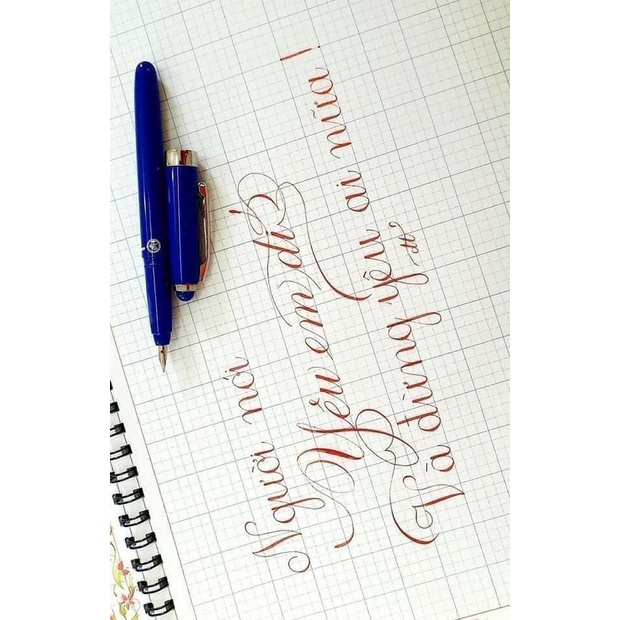 Người nói
Yêu em
Và đừng yêu ai nữa!